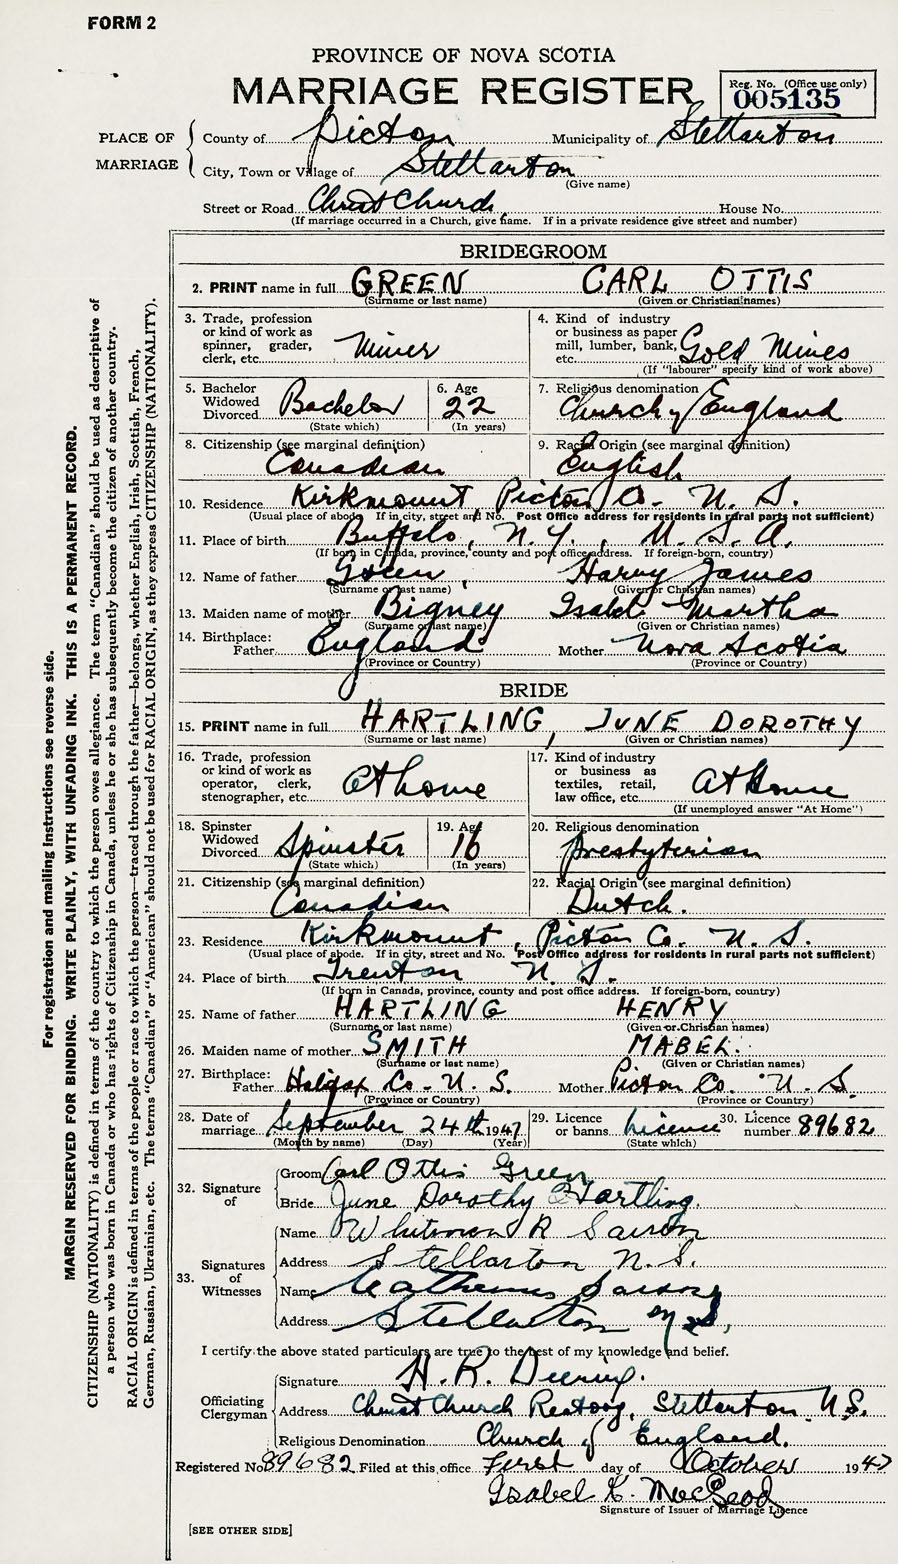 FORM 2
PROVINCE OF NOVA SCOTIA
MARRIAGE REGISTER
Reg. No. (Office use only)
005135
PLACE OF MARRIAGE
County of Picton Municipality of Stellarton
City, Town or Village of Stellarton
(Give name)
Street or Road Christ Church, House No.
(If marriage occurred in a Church, give name. If in a private residence give street and number)
BRIDEGROOM
2. PRINT name in full GREEN CARL OTTIS
(Surname or last name) (Given or Christian names)
3. Trade, profession or kind of work as spinner, grader, clerk, etc. Miner
4. Kind of industry or business as paper mill, lumber, bank, etc. Gold Mines
(If "labourer" specify kind of work above)
5. Bachelor Widowed Divorced Bachelor
(State which)
6. Age 22
(In years)
7. Religious denomination Church of England
8. Citizenship (see marginal definition) Canadian
9. Racial Origin (see marginal definition) English
10. Residence Kirkmount Picton Co. N. S.
(Usual place of abode. If in city, street and No. Post Office address for residents in rural parts not sufficient)
11. Place of birth Buffalo, N.Y., U.S.A.
(If born in Canada, province, county and post office address. If foreign-born, country)
12. Name of father Green, Harry James
(Surname or last name) (Given or Christian names)
13. Maiden name of mother Bigney Isabel Martha
(Surname or last name) (Given or Christian names)
14. Birthplace: Father England Mother Nova Scotia
(Province or Country) (Province or Country)
BRIDE
15. PRINT name in full HARTLING, JUNE DOROTHY
(Surname or last name) (Given or Christian names)
16. Trade, profession or kind of work as operator, clerk, stenographer, etc. At home
17. Kind of industry or business as textiles, retail, law office, etc. At Home
(If unemployed answer "At Home")
18. Spinster Widowed Divorced Spinster
(State which)
19. Age 16
(In years)
20. Religious denomination Presbyterian
21. Citizenship (see marginal definition) Canadian
22. Racial Origin (see marginal definition) Dutch.
23. Residence Kirkmount, Picton Co. N. S.
(Usual place of abode. If in city, street and No. Post Office address for residents in rural parts not sufficient)
24. Place of birth Trenton N. S.
(If born in Canada, province, county and post office address. If foreign-born, country)
25. Name of father HARTLING HENRY
(Surname or last name) (Given or Christian names)
26. Maiden name of mother SMITH MABEL.
(Surname or last name) (Given or Christian names)
27. Birthplace: Father Halifax Co. N. S. Mother Picton Co. N. S.
(Province or Country) (Province or Country)
28. Date of marriage September 24th 1947
(Month by name) (Day) (Year)
29. Licence or banns Licence
(State which)
30. Licence number 89682
32. Signature of
Groom Carl Ottis Green
Bride June Dorothy Hartling
33. Signatures of Witnesses
Name Whitman R
Address Stellarton N.S.
Name
Address Stellarton N.S.
I certify the above stated particulars are true to the best of my knowledge and belief.
Officiating Clergyman
Signature H. R.
Address Christ Church Rectory, Stellarton N.S.
Religious Denomination Church of England.
Registered No. 89682 Filed at this office First day of October 1947
Isabel K. MacLeod
Signature of Issuer of Marriage Licence
[SEE OTHER SIDE]
For registration and mailing instructions see reverse side.
MARGIN RESERVED FOR BINDING. WRITE PLAINLY, WITH UNFADING INK. THIS IS A PERMANENT RECORD.
CITIZENSHIP (NATIONALITY) is defined in terms of the country to which the person owes allegiance. The term "Canadian" should be used as descriptive of
a person who was born in Canada or who has rights of Citizenship in Canada, unless he or she has subsequently become the citizen of another country.
RACIAL ORIGIN is defined in terms of the people or race to which the person—traced through the father—belongs, whether English, Irish, Scottish, French,
German, Russian, Ukrainian, etc. The terms "Canadian" or "American" should not be used for RACIAL ORIGIN, as they express CITIZENSHIP (NATIONALITY).